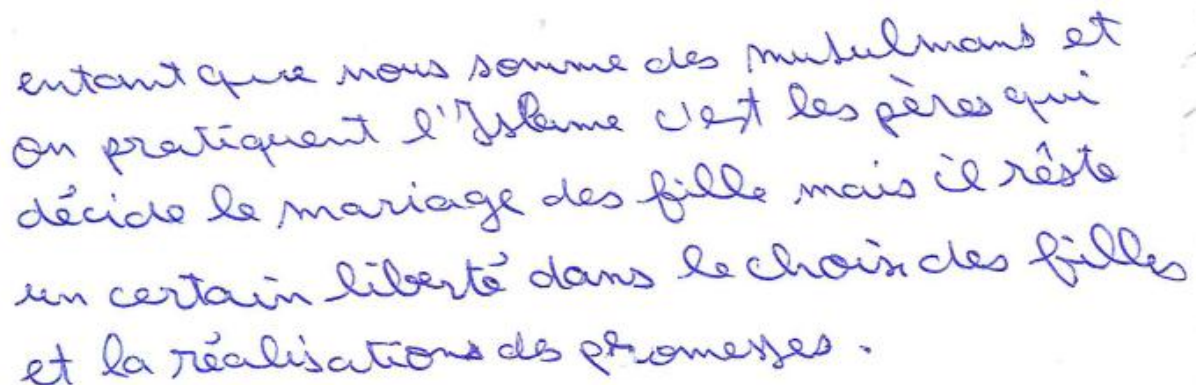 entant que nous somme des musulmans et
on pratiquent l'Islame c'est les pères qui
décide le mariage des fille mais il rêste
un certain liberté dans le choix des filles
et la réalisations des promesses.